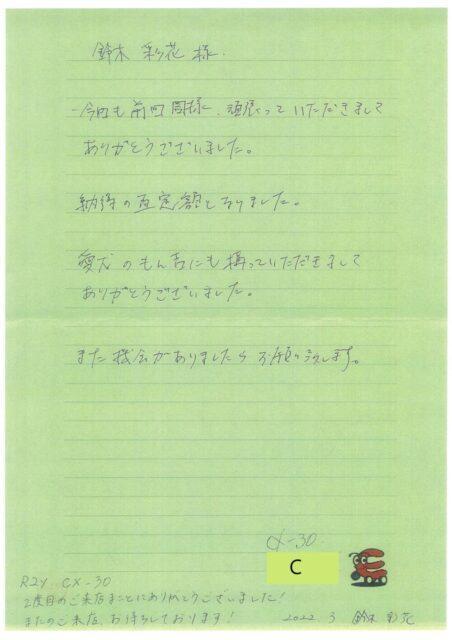 鈴木 彩花 様.
今回も前回同様、頑張っていただきまして
ありがとうございました。
納得の査定額となりました。
愛犬のもん吉にも構っていただきまして
ありがとうございました。
また機会がありましたらお願い致します。
CX-30.
C
R2Y CX-30
2度目のご来店まことにありがとうございました!
またのご来店、お待ちしております!
2022.3 鈴木 彩花